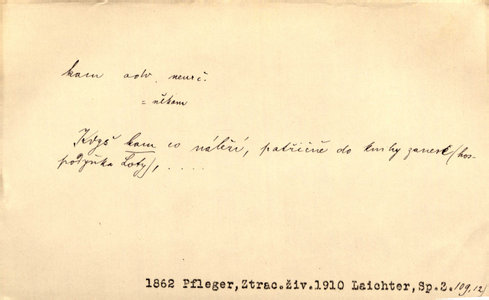 kam adv. neurč.
= někam
Když kam co náleží, patřičně do knihy zanesl (hos-
podyňka Loty), . . . .
1862 Pfleger,Ztrac.živ.1910 Laichter,Sp.2. 109,12)